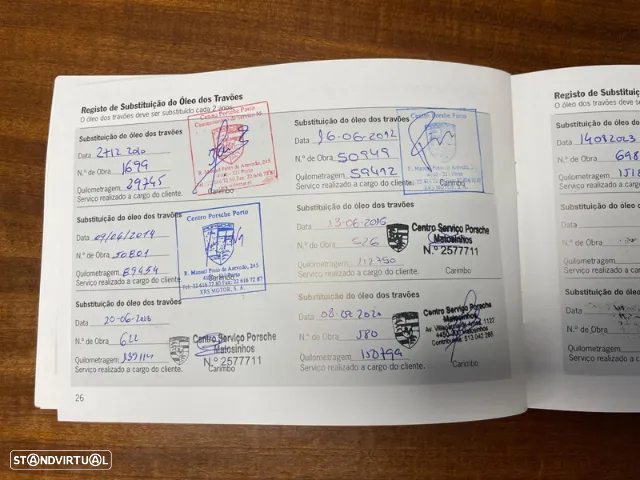 Registo de Substituição do Óleo dos Travões
O óleo dos travões deve ser substituído cada 2 anos.
Substituição do óleo dos travões
Data 2712 2010
N.º de Obra 1699
Quilometragem 29745
Serviço realizado a cargo do cliente.
Centro Porsche Porto
R. Manuel Pinto de Azevedo, 245
Substituição do óleo dos travões
Data 16-06-2012
N.º de Obra 50949
Quilometragem 59412
Serviço realizado a cargo do cliente.
Carimbo
Substituição do óleo dos travões
Data 09/04/2014
N.º de Obra 50801
Quilometragem 89454
Serviço realizado a cargo do cliente.
Centro Porsche Porto
R. Manuel Pinto de Azevedo, 245
Tel: 22 616 72 80 Fax: 22 616 72 87
SRS MOTOR, S. A.
Substituição do óleo dos travões
Data 13-06-2016
N.º de Obra 526
Quilometragem
Serviço realizado a cargo do cliente.
Centro Serviço Porsche
Matosinhos
N.º 2577711
Carimbo
Substituição do óleo dos travões
Data
N.º de Obra 622
Quilometragem
Serviço realizado a cargo do cliente.
Centro Serviço Porsche
Matosinhos
N.º 2577711
Carimbo
Substituição do óleo dos travões
Data 08.07.2020
N.º de Obra 580
Quilometragem 150799
Serviço realizado a cargo do cliente.
Centro Serviço Porsche
Matosinhos
Carimbo
26
Registo de Substituiç
O óleo dos travões deve ser
Substituição do óleo dos
Data 14082023
N.º de Obra 698
Quilometragem
Serviço realizado a ca
Substituição do óleo
Data
N.º de Obra
Quilometragem
Serviço realizado a
Substituição do óle
Data
N.º de Obra
Quilometragem
Serviço realizado a
STANDVIRTUAL